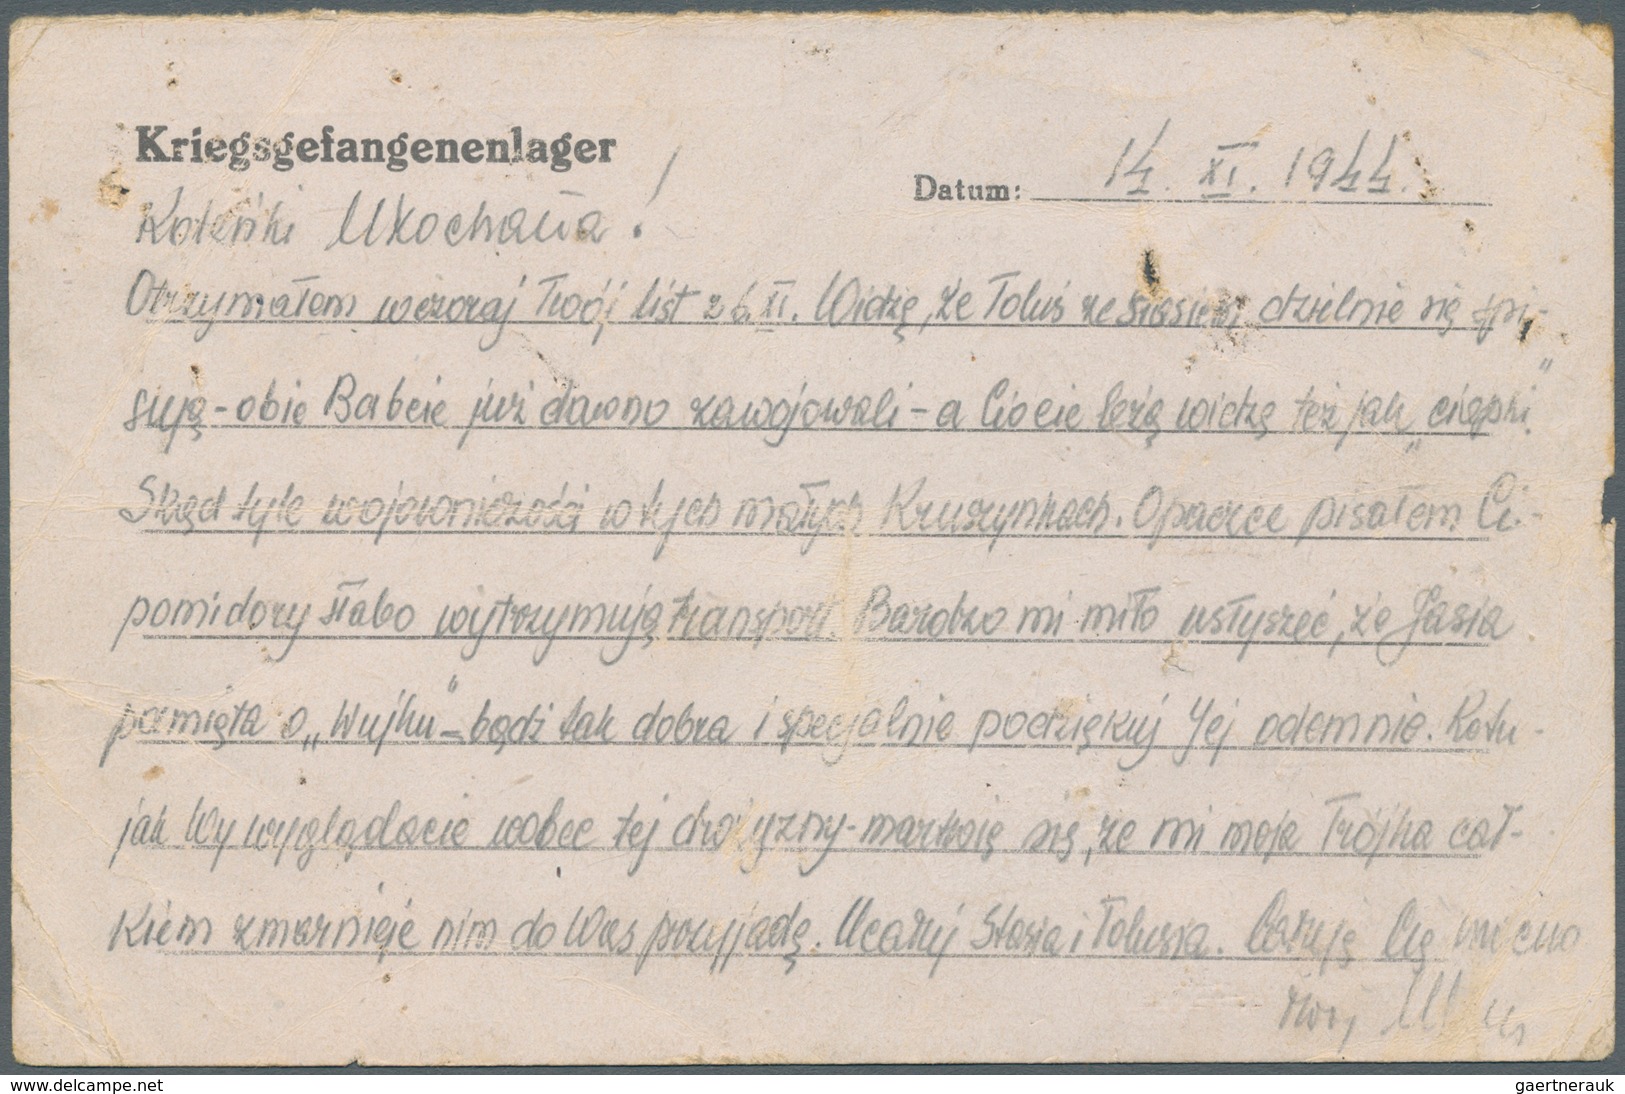 Kriegsgefangenenlager
Datum: 14. XI. 1944.
Ukochana!
Otrzymałem wczoraj Twój list z 6.XI. Widzę, że Toluś ze Stasiem dzielnie się spi-
sują - obie Babcie już dawno zawojowali - a Ciocie leżą widzę też jak „ciapki”
Skąd tyle wojowniczości w tych małych Kruszynkach. O paczce pisałem Ci -
pomidory słabo wytrzymują transport. Bardzo mi miło usłyszeć, że Jasia
pamięta o „Wujku” - bądź tak dobra i specjalnie podziękuj Jej odemnie. Kotu -
jak Wy wyglądacie wobec tej drożyzny - martwię się, że mi moja Trójka cał-
kiem zmarnieje nim do Was przyjadę. Ucałuj Stasia i Tolusia. Całuję Cię mocno
Twój
delcampe.net
gaertnerauk